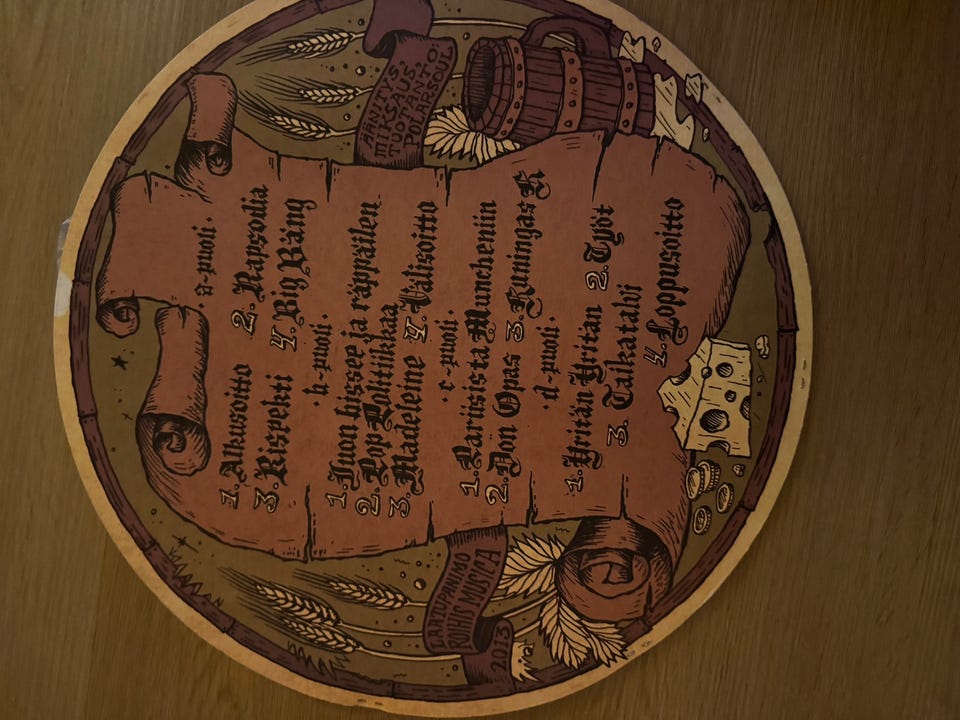 · a-puoli ·
1. Alkusoitto 2. Rapsodia
3. Rispekti 4. Big Bäng
· b-puoli ·
1. Juon bissee ja räppäilen
2. Pop Politiikkaa
3. Madeleine 4. Välisoitto
· c-puoli ·
1. Pariisista Muncheniin
2. Dön Opas 3. Kuningas R
· d-puoli ·
1. Yritän Yritän 2. Työt
3. Taikatalvi
4. Loppusoitto
LAATUPANIMO
ROIHIS MUSICA
2013
ÄÄNITYS,
MIKSAUS,
TUOTANTO:
POLARSOUL